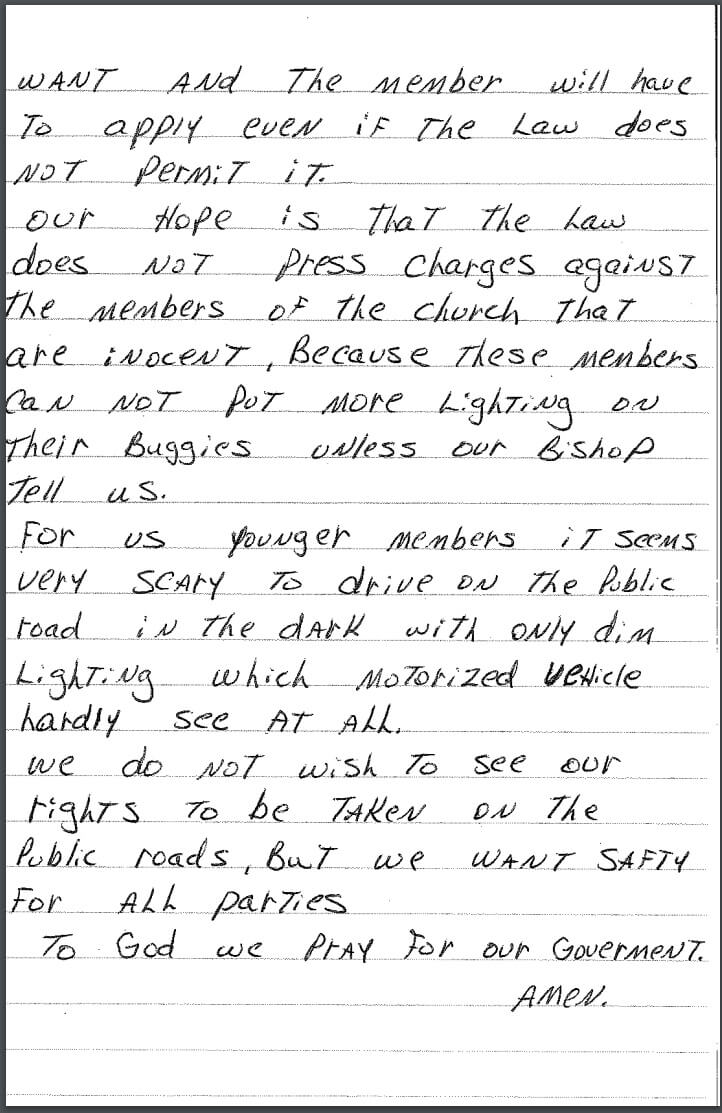 WANT AND The member will have
To apply even iF The Law does
NOT PermiT iT.
our Hope is ThaT The Law
does NOT Press Charges againsT
The members oF The church ThaT
are inocenT, Because These members
Can NOT PuT more LighTing on
Their Buggies unless our Bishop
Tell us.
For us younger members iT seems
very scary To drive on The Public
road in The dark wiTh only dim
LighTing which moTorized veHicle
hardly see AT ALL.
we do NOT wish To see our
righTs To be TAKen on The
Public roads, BuT we WANT SAFTY
For ALL parTies
To God we PrAy For our GovermenT.
Amen.